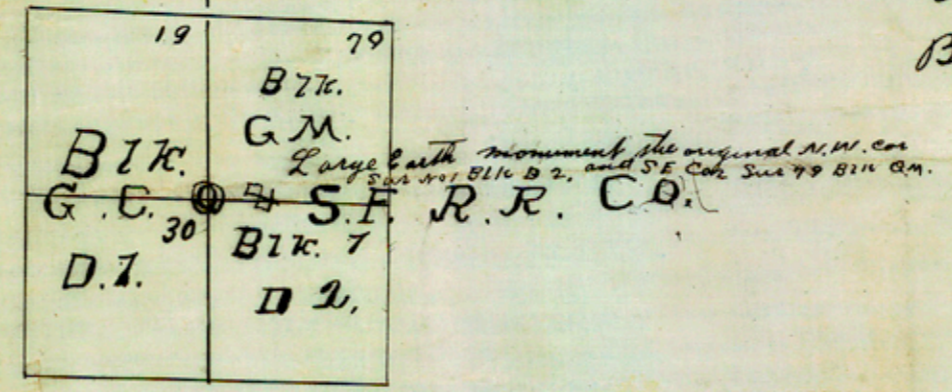 19 79
B
Blk.
G M.
Blk.
Large Earth monument the original N.W. cor
Sur No 1 Blk D 2, and S E Cor Sur 79 Blk G M.
G. C. & S. F. R. R. CO.
30
Blk. 1
D.1.
D 2,